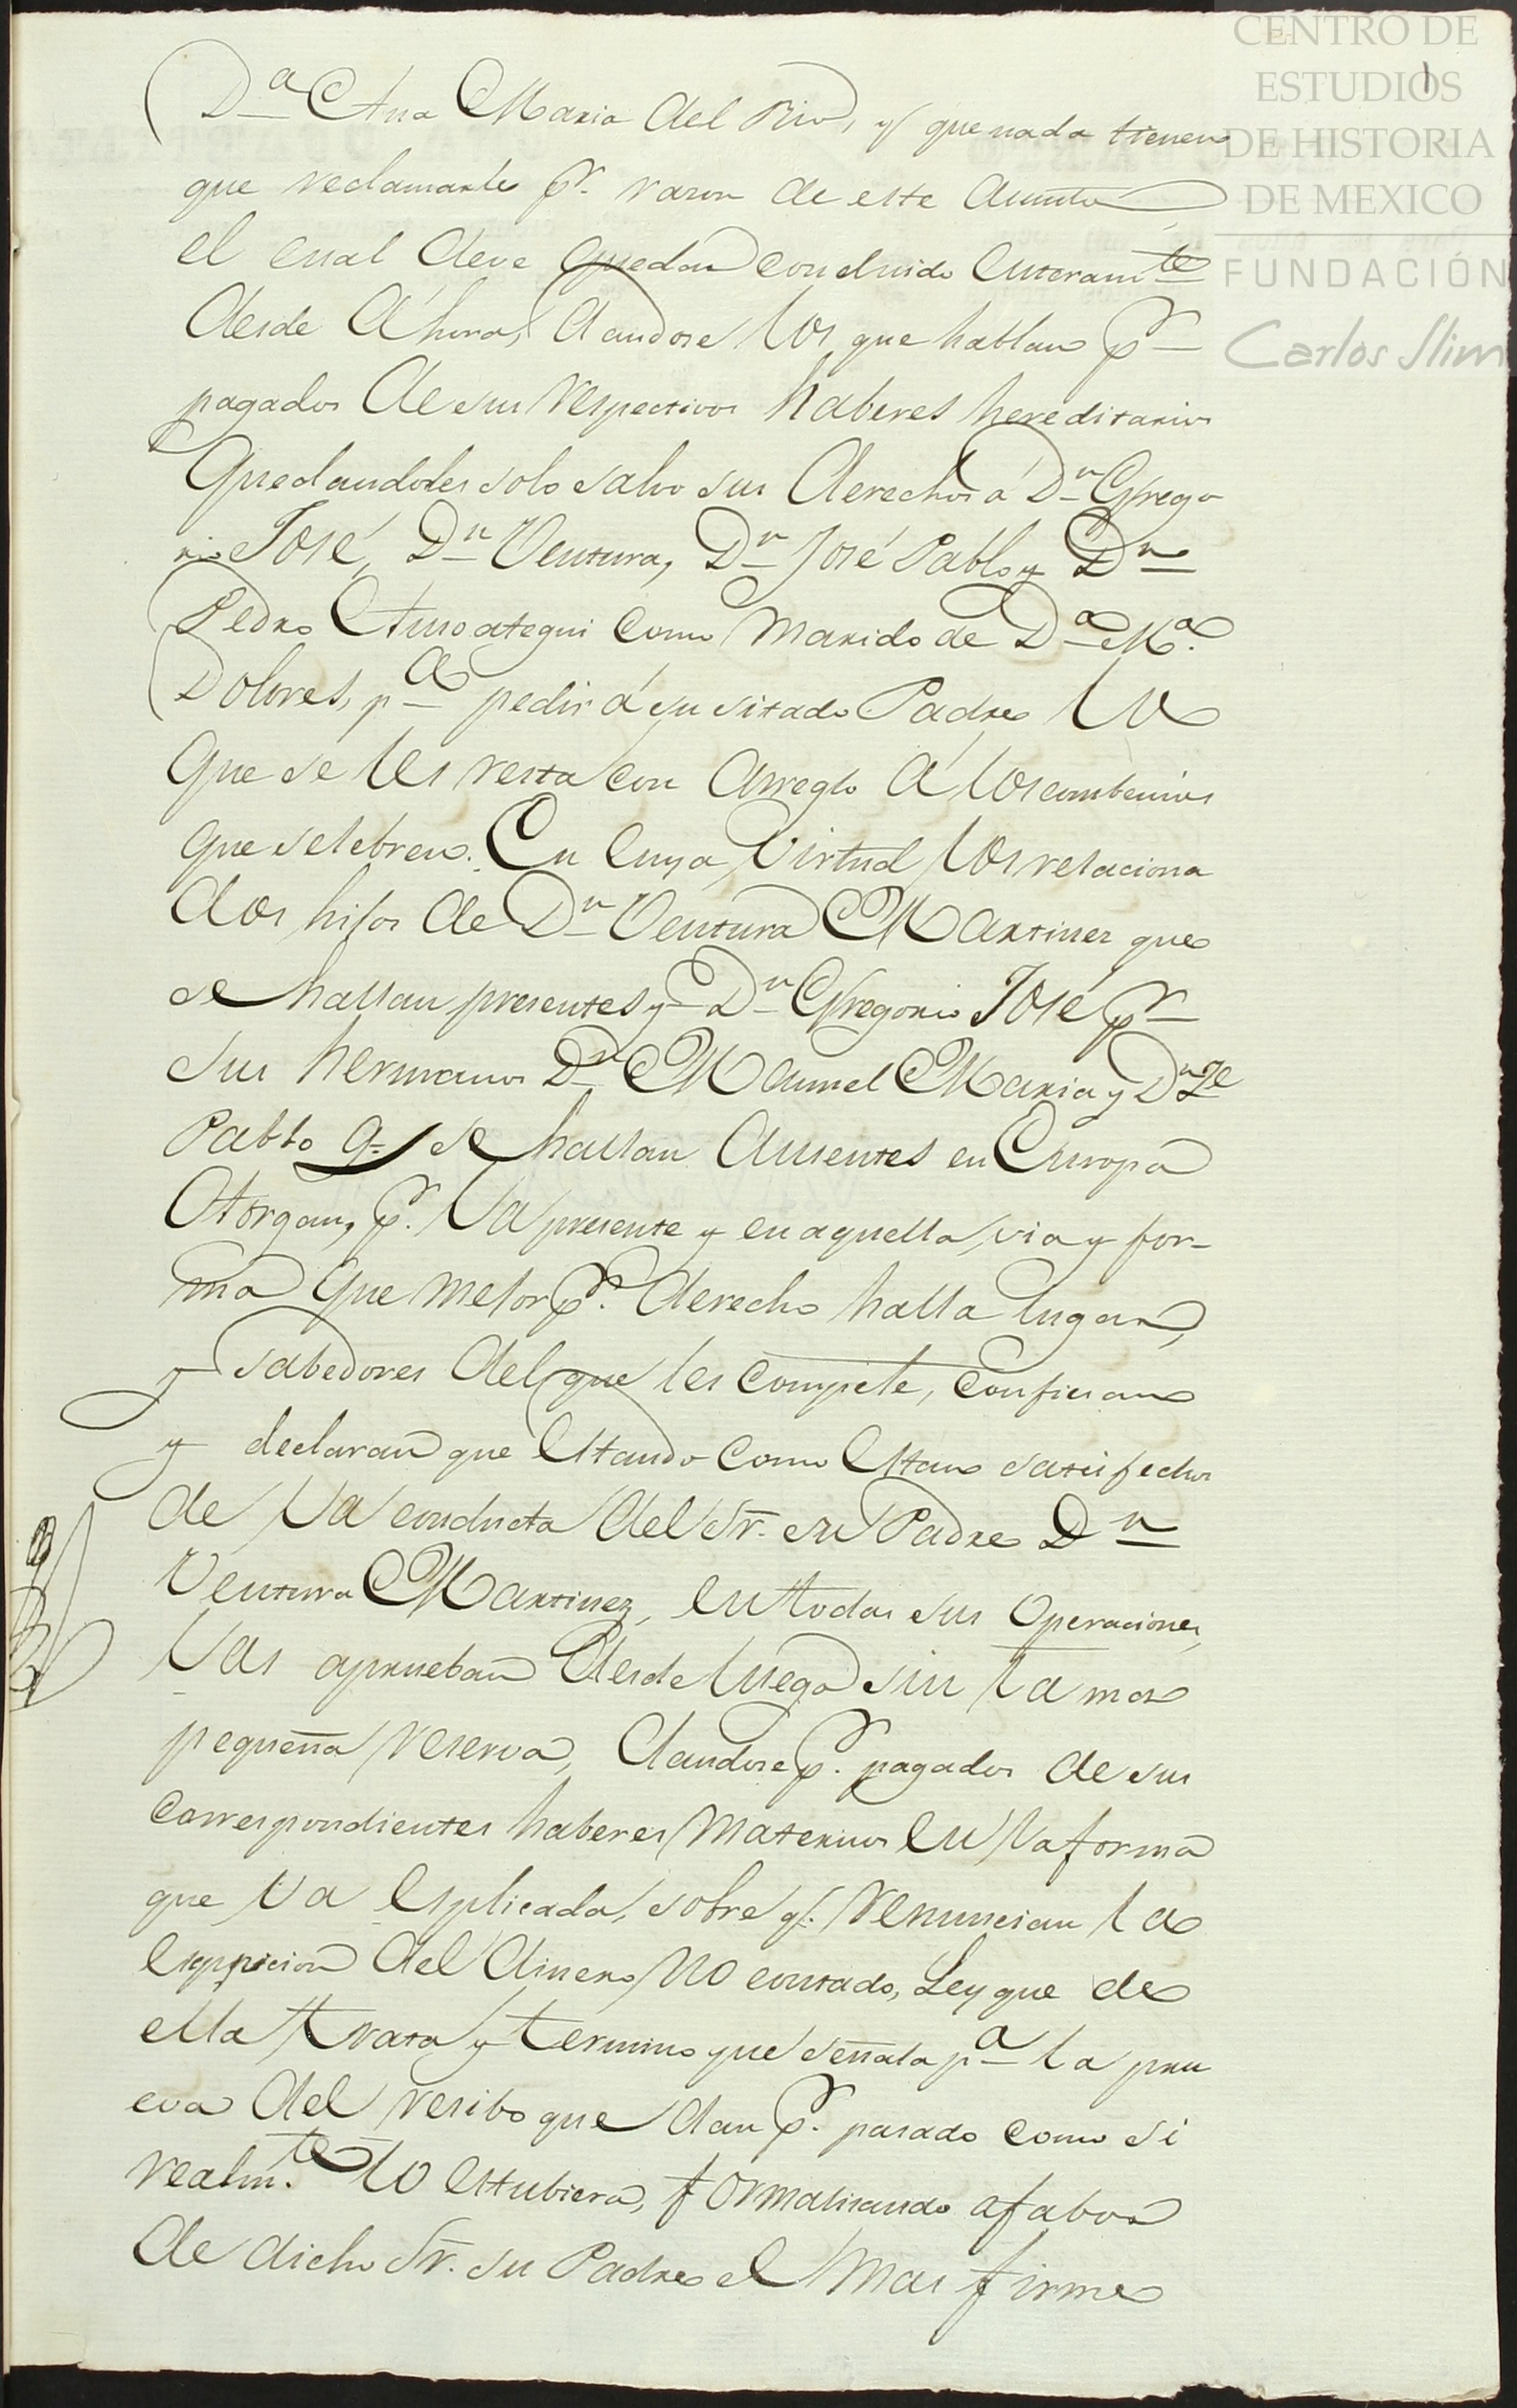 CENTRO DE
ESTUDIOS
DE HISTORIA
DE MEXICO
FUNDACIÓN
Carlos Slim
1
D.ª Ana Maria del Rio, y que nada tienen
que reclamarle p.r razon de este asunto
el cual deve quedar concluido enteram.te
desde ahora, dandose los que hablan p.r
pagados de sus respectivos haberes hereditarios
quedandoles solo salvo sus derechos á D.n Grego
rio José, D.n Ventura, D.n José Pablo y D.n
Pedro como marido de D.ª M.ª
Dolores, p.ª pedir á su sitado Padre lo
que se les resta con arreglo á los combenios
que selebren. En cuya virtud los relaciona
dos hijos de D.n Ventura Martinez que
se hallan presentes y D.n Gregorio José p.r
sus hermanos D.n Manuel Maria y D.n Je
Pablo q.e se hallan ausentes en Europa
Otorgan, p.r la presente y en aquella via y for-
ma que mejor p.r derecho halla lugar,
y sabedores del que les compete, confiesan
y declaran que estando como estan satisfechos
de la conducta del Sr. su Padre D.n
Ventura Martinez, en todas sus operaciones,
las aprueban desde luego sin la mas
pequeña reserva, dandose p.r pagados de sus
correspondientes haberes maternos en la forma
que va esplicada, sobre q.e renuncian la
del dinero no contado, Ley que de
ella trata y termino que señala p.ª la pru
eva del resibo que dan p.r pasado como si
realm.te lo estubiera, formalisando a fabor
de dicho Sr. su Padre el mas firme